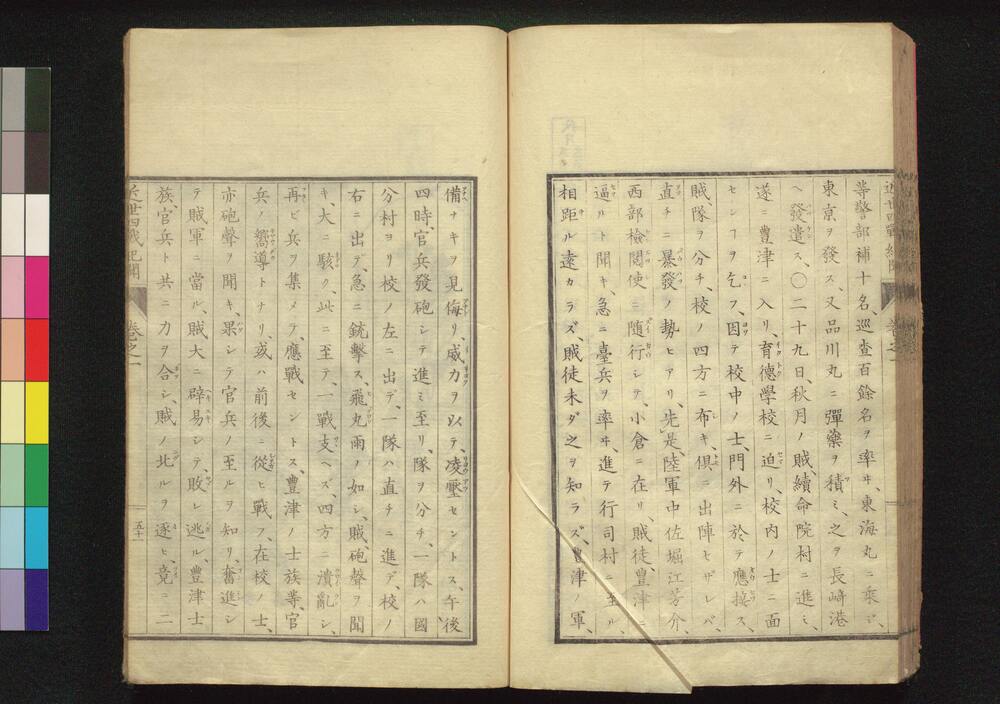 等警部補十名、巡查百餘名ヲ率ヰ、東海丸ニ乘シ、
東京ヲ發ス、又品川丸ニ彈藥ヲ積ミ、之ヲ長崎港
ヘ發遣ス、〇二十九日、秋月ノ賊、續命院村ニ進ミ、
遂ニ豊津ニ入リ、育德學校ニ迫リ、校内ノ士ニ面
センヿヲ乞フ、因テ校中ノ士、門外ニ於テ應接ス、
賊、隊ヲ分チ、校ノ四方ニ布キ、俱ニ出陣セザレバ、
直チニ暴發ノ勢ヒアリ、先是、陸軍中佐堀江芳介、
西部檢閱使ニ隨行シテ、小倉ニ在リ、賊徒、豊津ニ
逼ルト聞キ、急ニ臺兵ヲ率ヰ、進テ行司村ニ至ル、
相距ル遠カラズ、賊徒未ダ之ヲ知ラズ、豊津ノ軍、
備ナキヲ見侮リ、威力ヲ以テ、凌壓セントス、午後
四時、官兵發砲シテ進ミ至リ、隊ヲ分チ、一隊ハ國
分村ヨリ校ノ左ニ出デ、一隊ハ直チニ進デ、校ノ
右ニ出デ、急ニ銃擊ス、飛丸雨ノ如シ、賊、砲聲ヲ聞
キ、大ニ駭ク、此ニ至テ、一戰支ヘズ、四方ニ潰亂シ、
再ビ兵ヲ集メテ、應戰セントス、豊津ノ士族等、官
兵ノ嚮導トナリ、或ハ前後ニ從ヒ戰フ、在校ノ士、
亦砲聲ヲ聞キ、果シテ官兵ノ至ルヲ知リ、奮進シ
テ賊軍ニ當ル、賊大ニ辟易シテ、敗レ逃ル、豊津士
族、官兵ト共ニ、力ヲ合シ、賊ノ北ルヲ逐ヒ、竟ニ二
近世四戰紀聞
卷之一
五十一